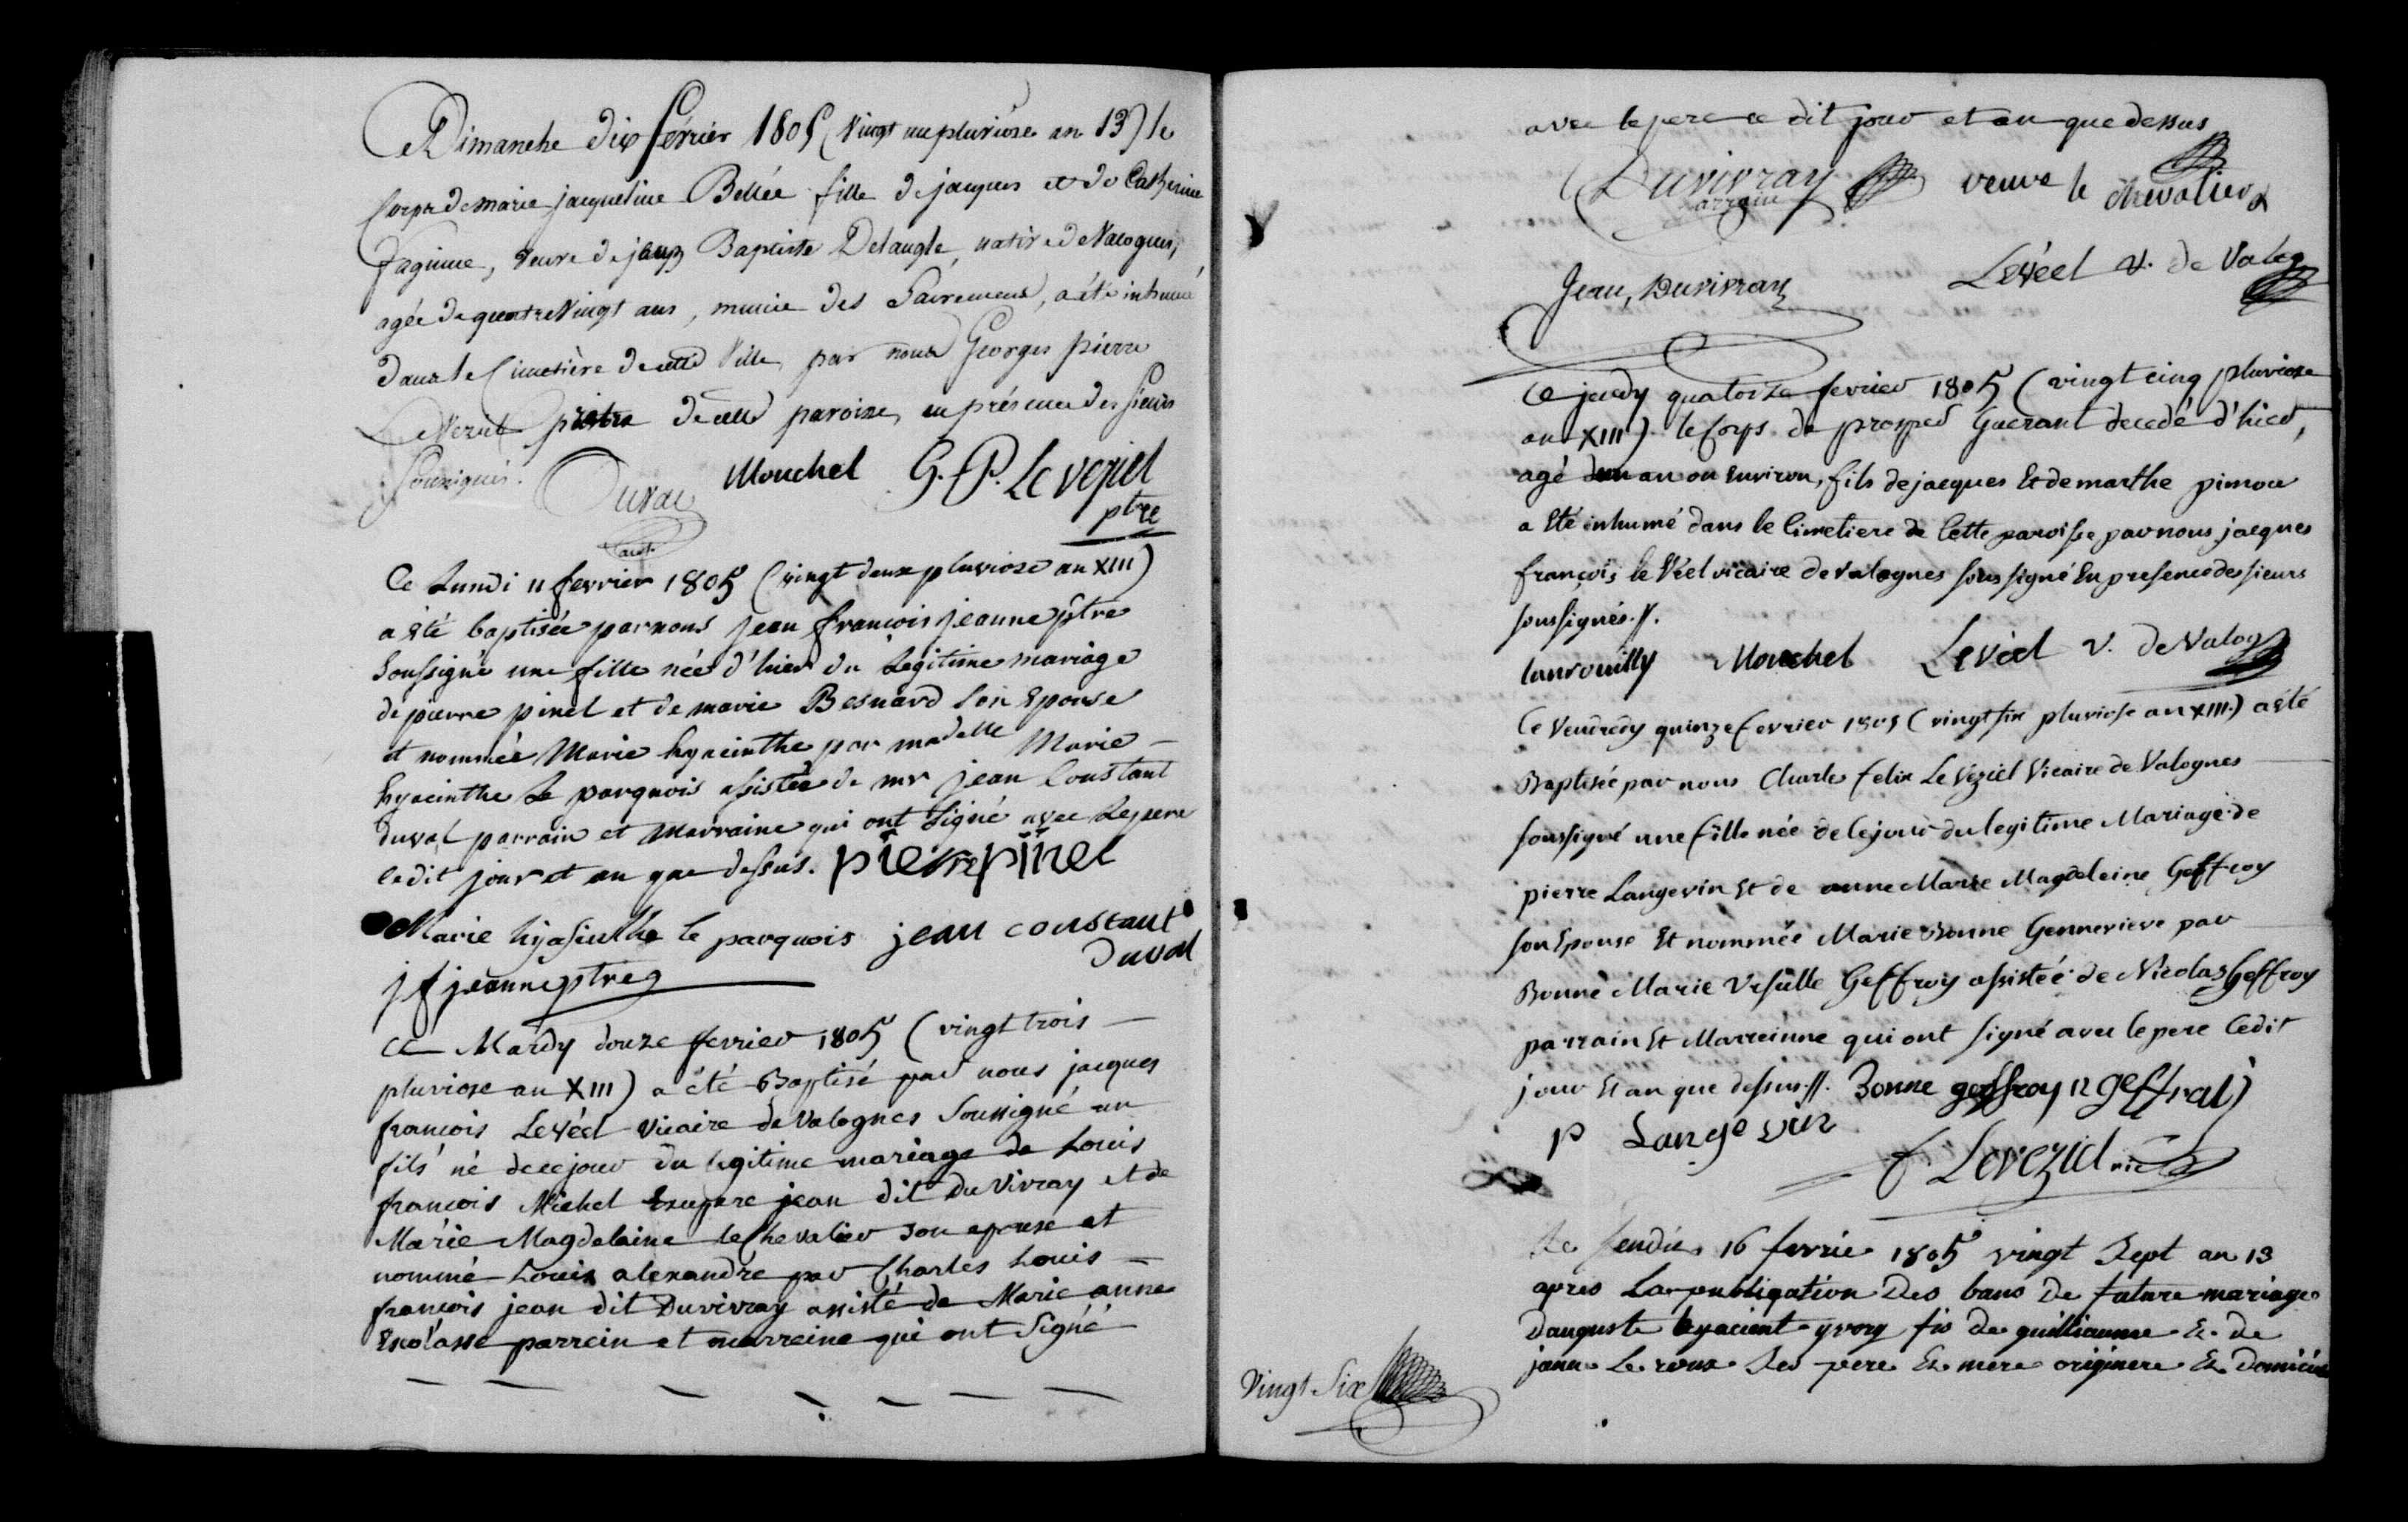 Ce Dimanche dix février 1805 (vingt un pluviôse an 13) le
Corps de marie jacqueline Bellée fille de jacques et de Catherine
veuve de jean Baptiste Delangle, native de Valognes,
agée de quatre Vingt ans, munie des Sacremens, a été inhumé
dans le Cimetière de cette Ville, par nous Georges pierre
Leveziel prêtre de cette paroisse, en présence des sieurs
soussignés. Duval Mouchel G. P. Le veziel
ptre
Ce Lundi 11 fevrier 1805 (vingt deux pluviose an XIII)
a été baptisée par nous jean françois jeanne ptre
soussigné une fille née d'hier du Legitime mariage
de pierre pinel et de marie Besnard son Epouse
et nommée Marie hyacinthe par madelle Marie
hyacinthe Le parquois assistée de mr jean Constant
duval parrain et Marraine qui ont signé avec Le pere
ledit jour et an que dessus. pierre pinel
Marie hyasinthe le parquois jean constant
Duval
j f jeanne ptre
Ce Mardy douze fevrier 1805 (vingt trois
pluviose an XIII) a été Baptisé par nous jacques
françois Levéel vicaire de Valognes soussigné un
fils né de ce jour du legitime mariage de Louis
françois Michel Exupere jean dit Du Vivray et de
Marie Magdelaine le Chevalier son epouse et
nommé Louis alexandre par Charles Louis
françois jean dit Duvivray assisté de Marie anne
Escolasse parrein et marreine qui ont signé
avec le pere ce dit jour et an que dessus
Duvivray veuve le chevalier
parrain
Jean, Duvivray Levéel v. de Valog
Ce jeudy quatorze fevrier 1805 (vingt cinq pluviose
an XIII) le Corps de prosper Guerant decedé d'hier,
agé dun an ou Environ, fils de jacques Et de marthe pimou
a Eté inhumé dans le Cimetiere de Cette paroisse par nous jacques
françois le Véel vicaire de valognes soussigné En presence des sieurs
soussignés.
lanrouilly Mouchel Levéel v. de Valog
Ce Vendredy quinze fevrier 1805 (vingt six pluviose an XIII.) a été
Baptisée par nous Charles felix Le Véziel Vicaire de Valognes
soussigné une fille née de ce jour du legitime Mariage de
pierre Langevin Et de anne Marie Magdeleine Geffroy
son Epouse Et nommée Marie Bonne Gennevieve par
Bonne Marie Ursulle Geffroy assistée de Nicolas Geffroy
parrain Et Marreinne qui ont signé avec le pere Cedit
jour Et an que dessus. Bonne geffroy n geffroy
P Langevin
f Leveziel vic
16 fevrie 1805 vingt Sept an 13
apres La publiqation Des bans De future mariage
Dauguste hyacient yvory fis de guilliaume Et de
janne Le roux Ses pere Et mere originere Et
Vingt Six